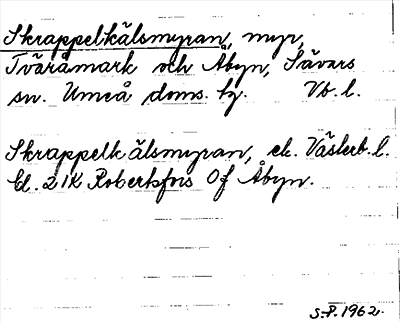 Skrappelkälsmyran, myr,
Tväråmark och Åbyn, Sävars
sn. Umeå doms. hg. Vb. l.
Skrappelkälsmyran, ek. Västerb. l.
bl. 21K Robertsfors Of Åbyn.
S.P. 1962.